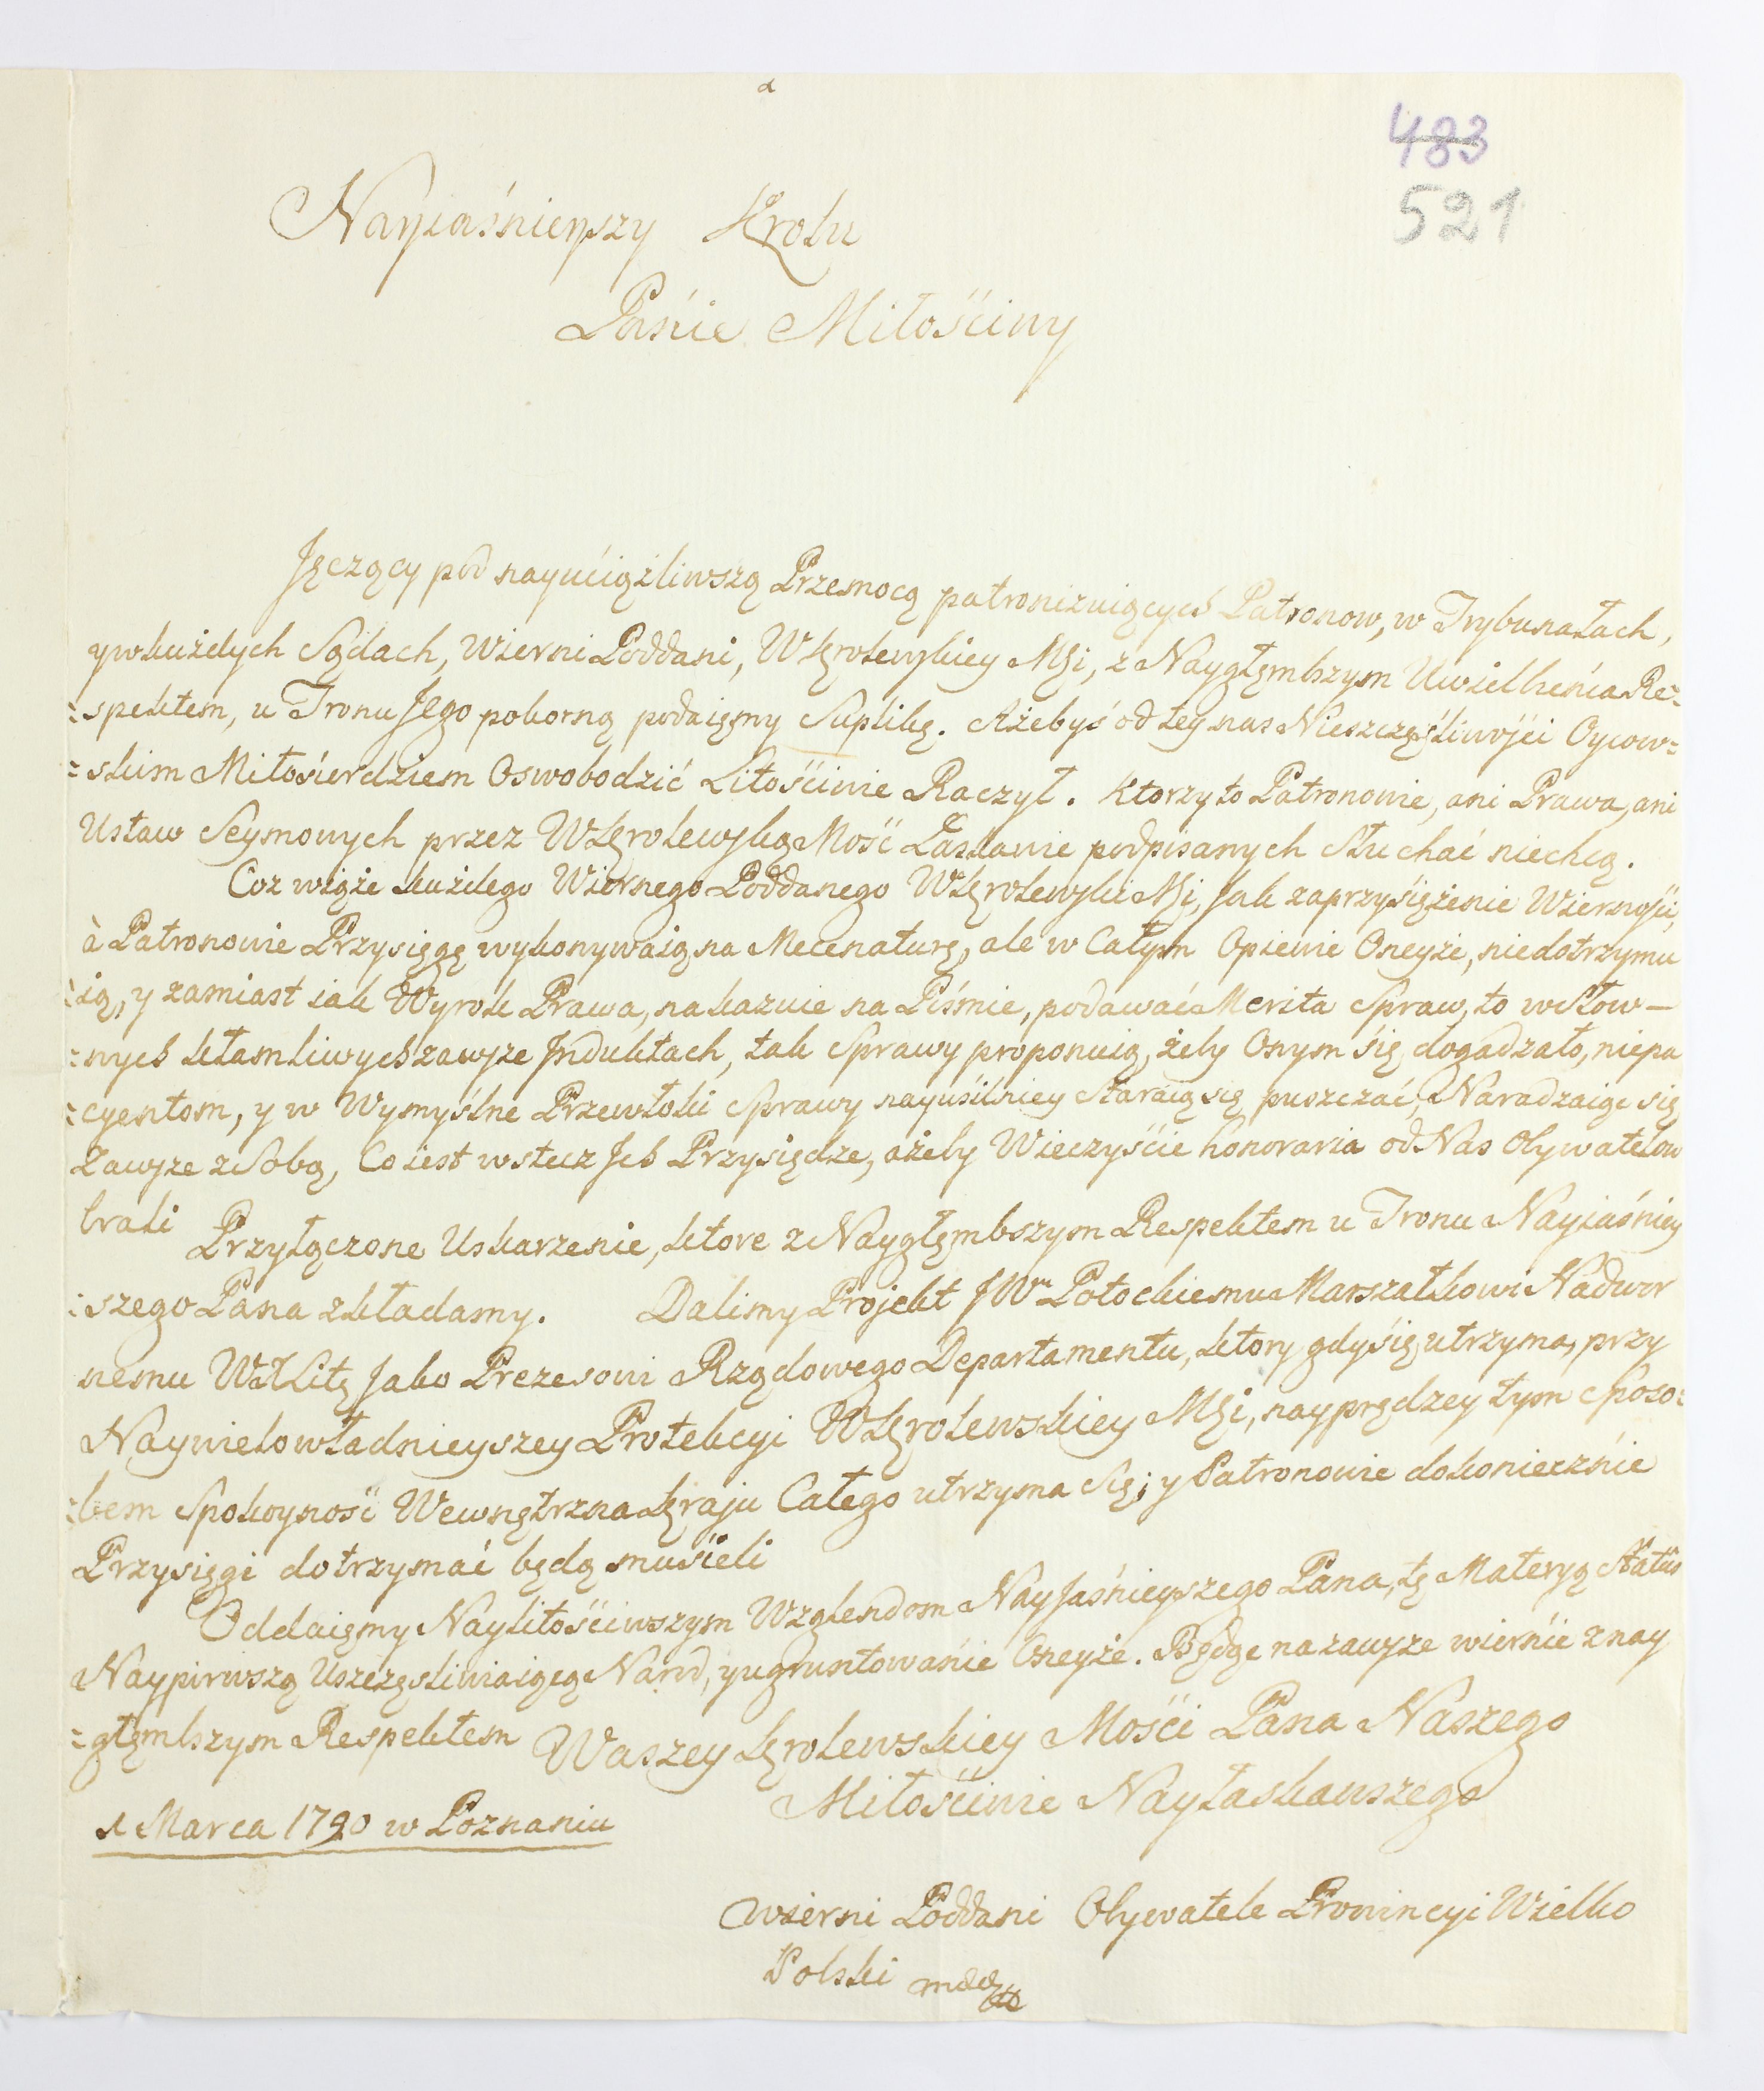 483
521
Nayiaśnieyszy Krolu
Panie Miłościwy
Jęczący pod nayuciążliwszą Przemocą patronizuiących Patronow, w Trybunałach,
y w każdych Sądach, Wierni Poddani, WKrolewskiey Mści, z Naygłęmbszym Uwielbienia Re-
=spektem, u Tronu Jego pokorną podaięmy Suplikę. Ażebyś od tey nas Nieszczęśliwości Oycow=
=skim Miłosierdziem Oswobodzić Litościwie Raczył. Ktorzy to Patronowie, ani Prawa, ani
Ustaw Seymowych przez WKrolewską Mość Łaskawie podpisanych Słuchać niechcą.
Coz wiąże każdego Wiernego Poddanego WKrolewski Mści, Jak zaprzysiężenie Wierności,
à Patronowie Przysięgę wykonywaią na Mecenaturę, ale w Całym Opiewie Oneyże, niedotrzymu
=ią, y zamiast iak Wyrok Prawa, nakazuie na Piśmie, podawać Merita Spraw, to w Słow-
=nych kłamliwych zawsze Jnduktach, tak Sprawy proponuią, żeby Onym się dogadzało, niepa
=cyentom, y w Wymyślne Przewłoki Sprawy nayusilniey Staraią się puszczać, Naradzaiąc się
Zawsze z Sobą, Co iest wstecz Jch Przysiędze, ażeby Wieczyście honoraria od Nas Obywatelow
brali
Przyłączone Uskarzenie, ktore z Naygłęmbszym Respektem u Tronu Nayiaśniey
=szego Pana zkładamy. Dalimy Projekt JWu Potockiemu Marszałkowi Nadwor
nemu WXLitt Jako Prezesowi Rządowego Departamentu, ktory gdy się utrzyma, przy
Naywielowładnieyszey Protekcyi WKrolewskiey Mści, nayprędzey tym Sposo=
=bem Spokoyność Wewnętrzna Kraju Całego utrzyma Się; y Patronowie dokoniecznie
Przysięgi dotrzymać będą musieli
Oddaięmy Naylitościwszym Wzglendom NayJaśnieyszego Pana, tę Materyą Status
Naypirwszą Uszczęsliwiaiącą Narod, y ugruntowanie Oneyże. Będąc na zawsze wiernie z nay
=głęmbszym Respektem Waszey Krolewskiey Mości Pana Naszego
Miłościwie Nayłaskawszego
1 Marca 1790 w Poznaniu
wierni Poddani Obywatele Prowincyi Wielko
Polski